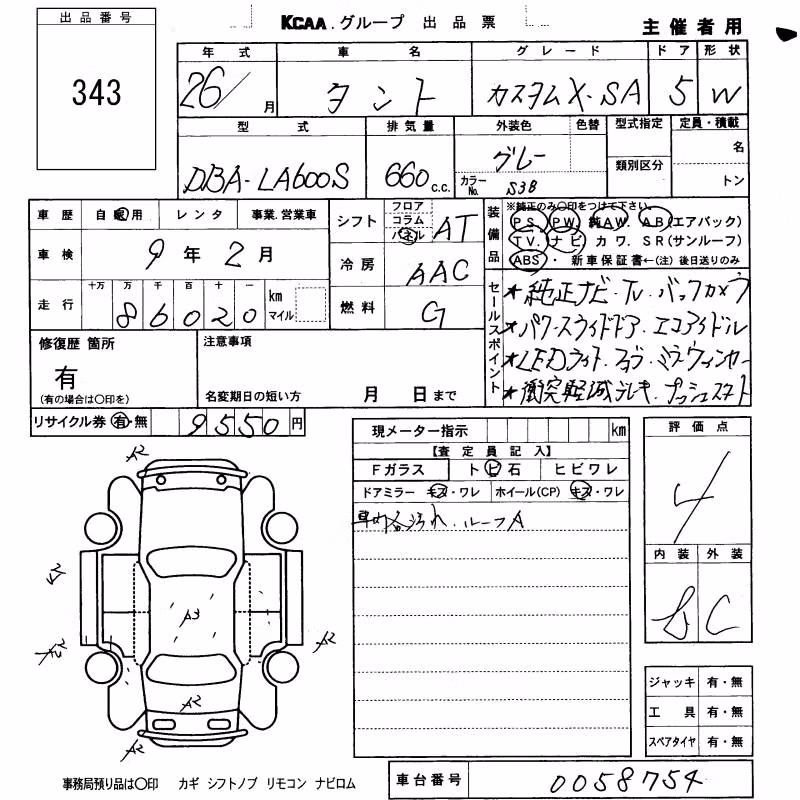 出品番号
343
KCAA.グループ 出品票
主催者用
年式 車名 グレード ドア 形状
26/ 月 タント カスタムX・SA 5 W
型式 排気量 外装色 色替 型式指定 定員・積載
DBA-LA600S 660 c.c. グレー 名
カラーNo. S38 類別区分 トン
車歴 自家用 レンタ 事業.営業車
シフト フロア コラム パネル AT
装備品 ※純正のみ○印をつけて下さい。
PS PW 純AW. AB(エアバック)
TV. ナビ カワ. SR(サンルーフ)
ABS・ 新車保証書←(注)後日送りのみ
車検 9年2月
冷房 AAC
走行 十万 万 千 百 十 一 km マイル
86020
燃料 G
セールスポイント
★純正ナビ・TV・バックカメラ
★パワースライドドア・エコアイドル
★LEDライト・フォグ・ミラーウィンカー
★衝突軽減ブレーキ・プッシュスタート
修復歴 箇所
有
(有の場合は○印を)
注意事項
名変期日の短い方 月 日まで
リサイクル券 有・無 9550円
現メーター指示 km
【査定員記入】
Fガラス トビ石 ヒビワレ
ドアミラー キズ・ワレ ホイール(CP) キズ・ワレ
車内各汚れ.ルーフA
評価点
4
内装 外装
C
A2
A3
A2
A2
ジャッキ 有・無
工具 有・無
スペアタイヤ 有・無
事務局預り品は○印 カギ シフトノブ リモコン ナビロム
車台番号 0058754